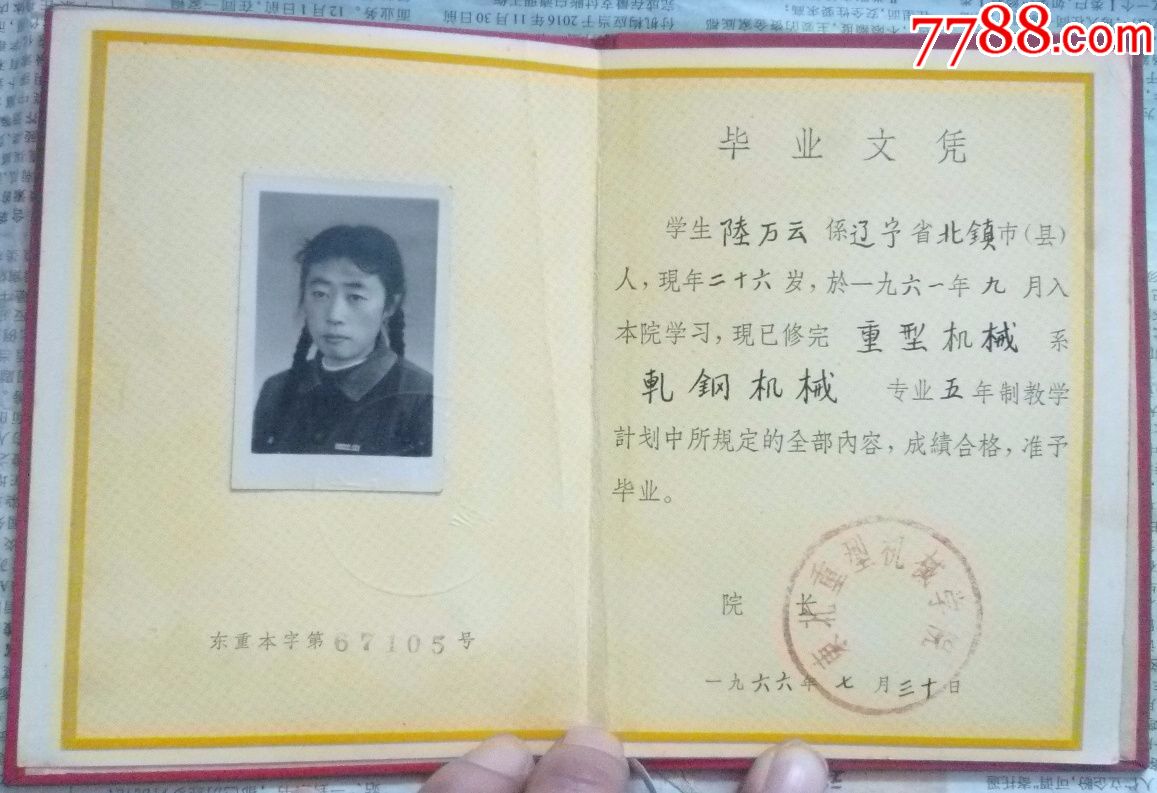 7788.com
毕业文凭
学生陸万云係辽宁省北鎮市(县)
人，現年二十六岁，於一九六一年九月入
本院学习，現已修完重型机械系
軋鋼机械专业五年制教学
計划中所規定的全部內容，成績合格，准予
毕业。
院
东北重型机械学院
东重本字第67105号
一九六六年七月三十日